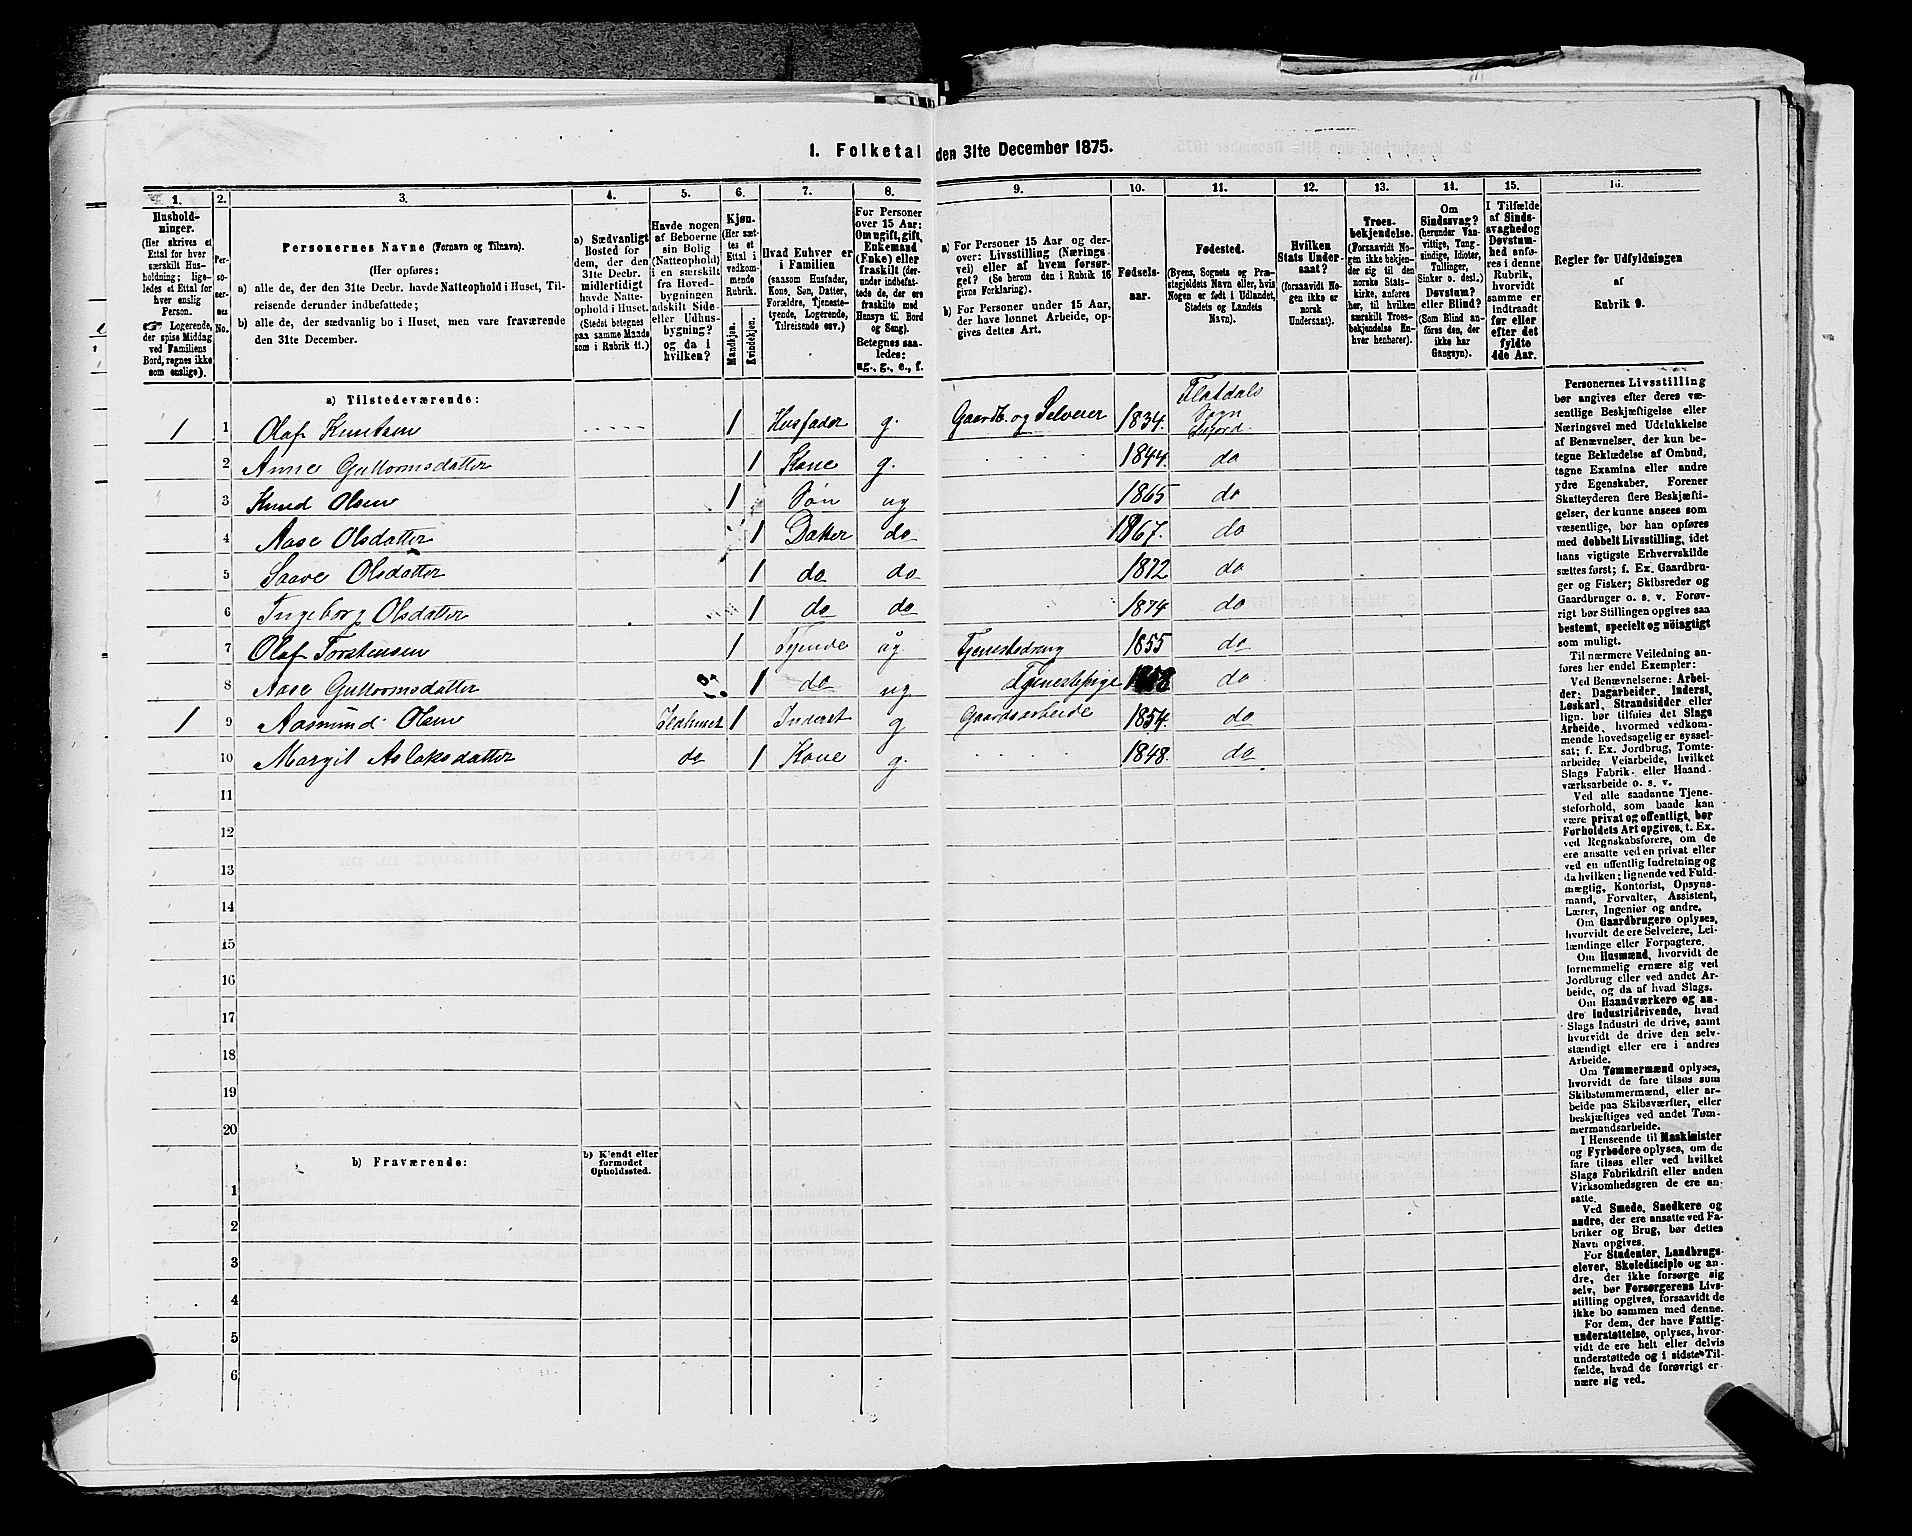 1. Folketal den 31te December 1875.
1. 2. 3. 4. 5. 6. 7. 8. 9. 10. 11. 12. 13. 14. 15. 16.
Hushold-
ninger.
(Her skrives et
Ettal for hver
særskilt Hus-
holdning; lige-
ledes et Ettal for
hver enslig
Person.
☞ Logerende,
der spise Middag
ved Familiens
Bord, regnes ikke
som enslige).
Per-
so-
ner-
nes
No.
Personernes Navne (Fornavn og Tilnavn).
(Her opføres:
a) alle de, der den 31te Decbr. havde Natteophold i Huset, Til-
reisende derunder indbefattede;
b) alle de, der sædvanlig bo i Huset, men vare fraværende
den 31te December.
a) Sædvanligt
Bosted for
dem, der den
31te Decbr.
midlertidigt
havde Natte-
ophold i Huset.
(Stedet betegnes
paa samme Maade
som i Rubrik 11.)
Havde nogen
af Beboerne
sin Bolig
(Natteophold)
i en særskilt
fra Hoved-
bygningen
adskilt Side-
eller Udhus-
bygning?
og da i
hvilken?
Kjøn.
(Her sæt-
tes et
Ettal i
vedkom-
mende
Rubrik.
Mandkjøn.
Kvindekjøn.
Hvad Enhver er
i Familien
(saasom Husfader,
Kone, Søn, Datter,
Forældre, Tjeneste-
tyende, Logerende,
Tilreisende osv.)
For Personer
over 15 Aar:
Om ugift, gift,
Enkemand
(Enke) eller
fraskilt (der-
under indbefat-
tede de, der ere
fraskilte med
Hensyn til Bord
og Seng).
Betegnes saa-
ledes:
ug., g., e., f.
a) For Personer 15 Aar og der-
over: Livsstilling (Nærings-
vei) eller af hvem forsør-
get? (Se herom den i Rubrik 16
givne Forklaring).
b) For Personer under 15 Aar,
der have lønnet Arbeide, op-
gives dettes Art.
Fødsels-
aar.
Fødested.
(Byens, Sognets og Præ-
stegjeldets Navn eller, hvis
Nogen er født i Udlandet,
Stedets og Landets
Navn).
Hvilken
Stats Under-
saat?
(forsaavidt No-
gen ikke er
norsk
Undersaat).
Troes-
bekjendelse.
(Forsaavidt No-
gen ikke bekjen-
der sig til den
norske Stats-
kirke, anføres
her, til hvilken
særskilt Troes-
bekjendelse En-
hver henhører).
Om
Sindssvag?
(herunder Van-
vittige, Tung-
sindige, Idioter,
Tullinger,
Sinker o. desl.)
Døvstum?
eller Blind?
(Som Blind an-
føres den, der
ikke har
Gangsyn).
I Tilfælde
af Sinds-
svaghed og
Døvstum-
hed anfø-
res i denne
Rubrik,
hvorvidt
samme er
indtraadt
før eller
efter det
fyldte
4de Aar.
Regler før Udfyldningen
af
Rubrik 9.
a) Tilstedeværende:
1 1 Olaf Knutsen 1 Husfader g. Gaardb. og Selveier 1834. Flatdals
Sogn
2 Anne Gullormsdatter 1 Kone g. 1844. do
3 Knud Olsen 1 Søn ug 1865 do
4 Aase Olsdatter 1 Datter do 1867. do
5 Saave Olsdatter 1 do do 1872 do
6 Ingeborg Olsdatter 1 do do 1874 do
7 Olaf Torstensen 1 Tyende ug. Tjenestedreng 1855 do
8 Aase Gullormsdatter 1 do ug Tjenestepige do
1 9 Aasmund Olsen Ildhuset 1 Inderst g Gaardsarbeide 1854. do
10 Margit Aslaksdatter do 1 Kone g. 1848. do
11
12
13
14
15
16
17
18
19
20
b) Fraværende:
b) Kjendt eller
formodet
Opholdssted.
1
2
3
4
5
6
Personernes Livsstilling
bør angives efter deres væ-
sentlige Beskjæftigelse eller
Næringsvei med Udelukkelse
af Benævnelser, der kun be-
tegne Beklædelse af Ombud,
tagne Examina eller andre
ydre Egenskaber. Forener
Skatteyderen flere Beskjæfti-
gelser, der kunne ansees som
væsentlige, bør han opføres
med dobbelt Livsstilling, idet
hans vigtigste Erhvervskilde
sættes først; f. Ex. Gaardbru-
ger og Fisker; Skibsreder og
Gaardbruger o. s. v. Forøv-
rigt bør Stillingen opgives saa
bestemt, specielt og nöiagtigt
som muligt.
Til nærmere Veiledning an-
føres her endel Exempler:
Ved Benævnelserne: Arbei-
der; Dagarbeider, Inderst,
Løskarl, Strandsidder eller
lign. bør tilføies det Slags
Arbeide, hvormed vedkom-
mende hovedsagelig er syssel-
sat; f. Ex. Jordbrug, Tomte-
arbeide; Veiarbeide, hvilket
Slags Fabrik- eller Haand-
værksarbeide o. s. v.
Ved alle saadanne Tjene-
steforhold, som baade kan
være privat og offentligt, bør
Forholdets Art opgives, t. Ex.
ved Regnskabsførere, om de
ere ansatte ved en privat eller
ved en offentlig Indretning og
da hvilken; lignende ved Fuld-
mægtig, Kontorist, Opsyns-
mand, Forvalter, Assistent,
Lærer, Ingeniør og andre.
Om Gaardbrugere oplyses,
hvorvidt de ere Selveiere, Lei-
lændinge eller Forpagtere.
Om Husmænd, hvorvidt de
fornemmelig ernære sig ved
Jordbrug eller ved andet Ar-
beide, og da af hvad Slags.
Om Haandværkere og an-
dre Industridrivende, hvad
Slags Industri de drive, samt
hvorvidt de drive den selv-
stændigt eller ere i andres
Arbeide.
Om Tømmermænd oplyses,
hvorvidt de fare tilsøs som
Skibstømmermænd, eller ar-
beide paa Skibsværfter, eller
beskjæftiges ved andet Tøm-
mermandsarbeide.
I Henseende til Maskinister
og Fyrbødere oplyses, om de
fare tilsøs eller ved hvilket
Slags Fabrikdrift eller anden
Virksomhedsgren de ere an-
satte.
Ved Smede, Snedkere og
andre, der ere ansatte ved Fa-
briker og Brug, bør dettes
Navn opgives.
For Studenter, Landbrugs-
elever, Skoledisciple og an-
dre, der ikke forsørge sig
selv, bør Forsørgerens Livs-
stilling opgives, forsaavidt de
ikke bo sammen med denne.
For dem, der have Fattig-
understøttelse, oplyses, hvor-
vidt de ere helt eller delvis
understøttede og i sidste Til-
fælde, hvad de forøvrigt er-
nære sig ved.